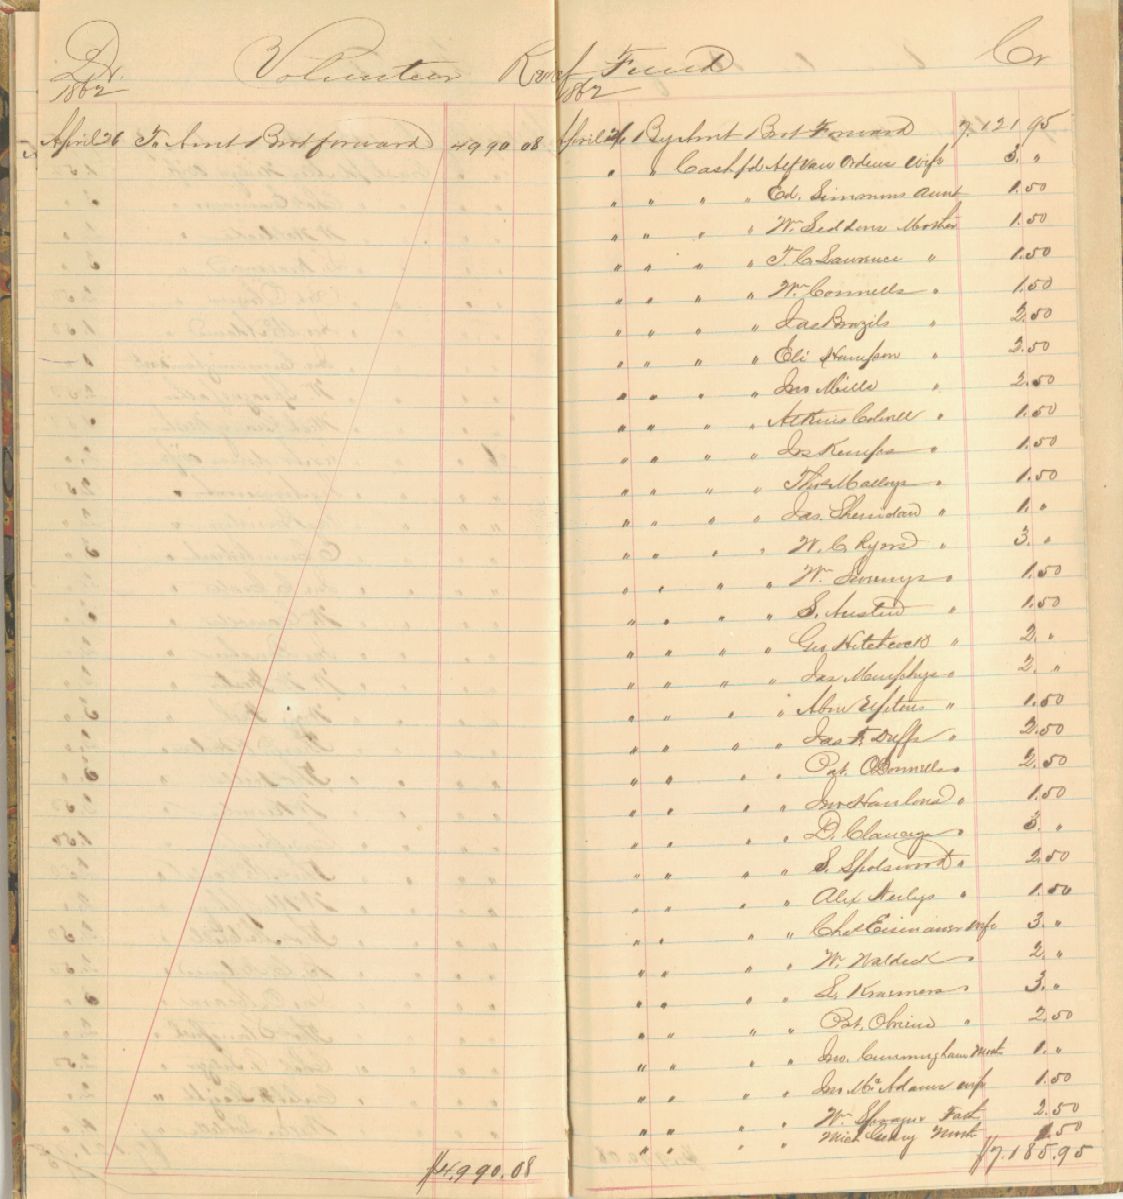 Dr. Volunteer Relief Fund Cr
1862 1862
April 26 To Amt Brot forward 4990 08
April 26 By Amt Brot Forward 7.121 95
" " Cash pd Alf Van Ordens wife 3. "
" " " " Ed. Simmons Aunt 1.50
" " " " Wm Seddons Mother 1.50
" " " " T. C. Lawrence " 1.50
" " " " Wm Connells " 1.50
" " " " Jas Brazils " 2.50
" " " " Eli Hampson " 2.50
" " " " Jno Mills " 2.50
" " " " Atkins " 1.50
" " " " Jos Kemps " 1.50
" " " " Thos Malloys " 1.50
" " " " Jas. Sheridan " 1. "
" " " " W. C. Ryers " 3. "
" " " " Wm Sweenys " 1.50
" " " " S. Austin " 1.50
" " " " Geo Hitchcock " 2. "
" " " " Jas Murphys " 2. "
" " " " Abm " 1.50
" " " " Jas F. Duffs " 2.50
" " " " Pat. O'Donnells " 2.50
" " " " Jno Hanlons " 1.50
" " " " D. Clancys " 3. "
" " " " S. Spotswood " 2.50
" " " " Alex " 1.50
" " " " Chas Eisenauer wife 3. "
" " " " Wm Waldeck " 2. "
" " " " L. Kraemers " 3. "
" " " " Pat. Obriens " 2.50
" " " " Jno. Cunningham Moth 1. "
" " " " Jno McAdams wife 1.50
" " " " Wm Sprague Fath 2.50
" " " " Mich Geary Moth 1.50
$4.990.08 $7.185.95